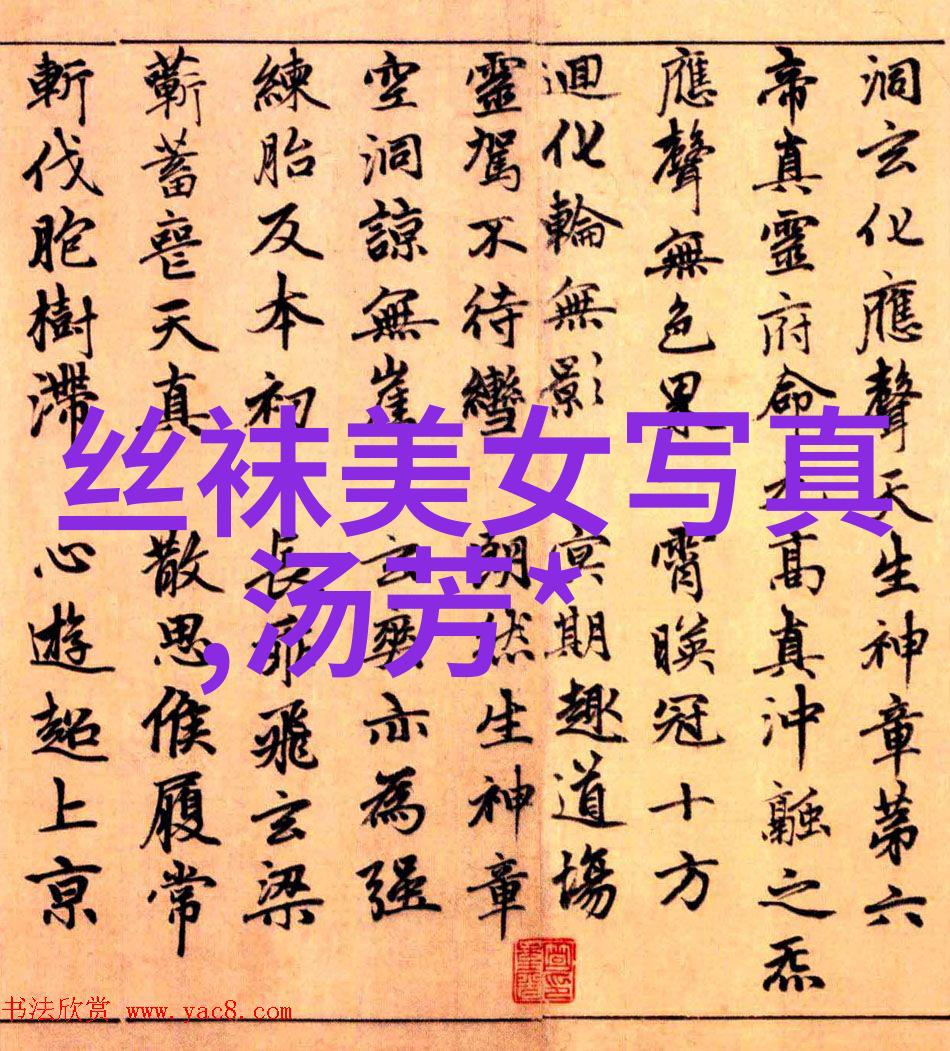 洞玄化應聲天生神章第六
帝真靈府命高真沖融之炁
應聲無色界 霄暎冠十方
迴化輪無影 冥期趣道場
靈駕不待轡 朗然生神章
空洞諒無崖 玄爽亦為强
練胎反本初 長乖飛玄梁
蘄蓄喪天真 散思候履常
斬伐胞樹滯 心遊超上亰
丝袜美女写真
,汤芳*
书法欣赏 www.yac8.com